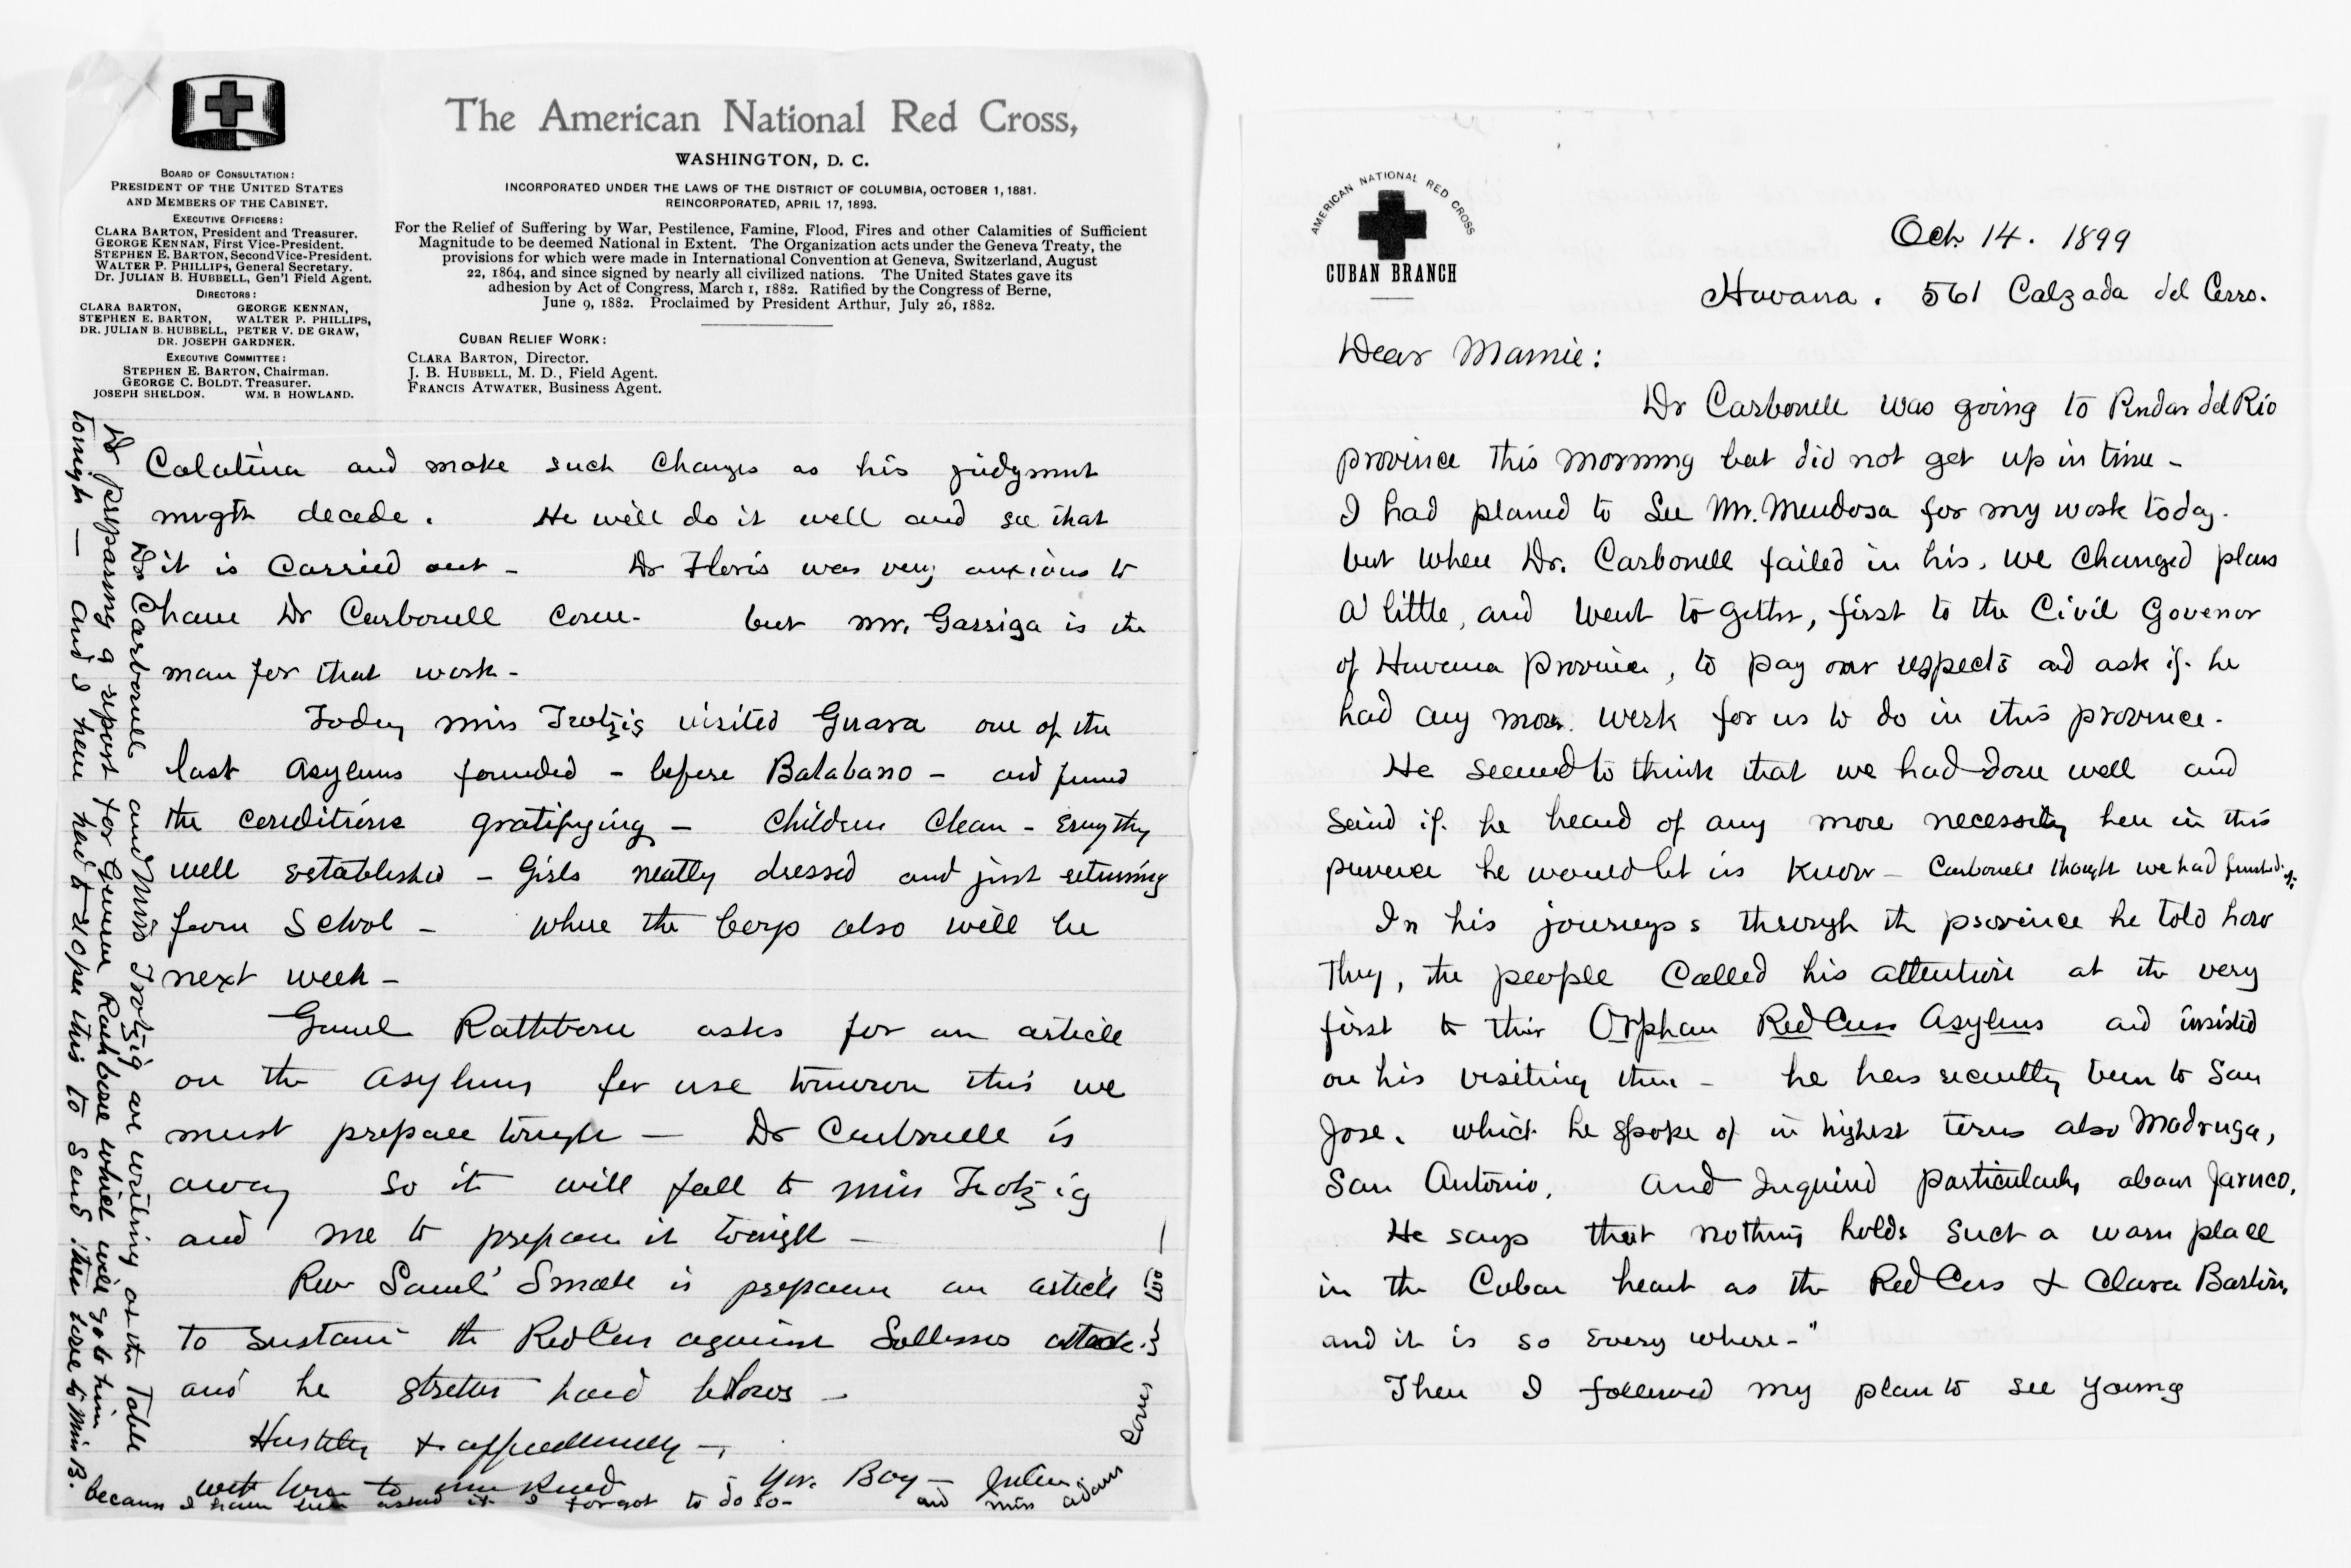 The American National Red Cross,
WASHINGTON, D. C.
INCORPORATED UNDER THE LAWS OF THE DISTRICT OF COLUMBIA, OCTOBER 1, 1881.
REINCORPORATED, APRIL 17, 1893.
For the Relief of Suffering by War, Pestilence, Famine, Flood, Fires and other Calamities of Sufficient
Magnitude to be deemed National in Extent. The Organization acts under the Geneva Treaty, the
provisions for which were made in International Convention at Geneva, Switzerland, August
22, 1864, and since signed by nearly all civilized nations. The United States gave its
adhesion by Act of Congress, March 1, 1882. Ratified by the Congress of Berne,
June 9, 1882. Proclaimed by President Arthur, July 26, 1882.
CUBAN RELIEF WORK:
CLARA BARTON, Director.
J. B. HUBBELL, M. D., Field Agent.
FRANCIS ATWATER, Business Agent.
BOARD OF CONSULTATION:
PRESIDENT OF THE UNITED STATES
AND MEMBERS OF THE CABINET.
EXECUTIVE OFFICERS:
CLARA BARTON, President and Treasurer.
GEORGE KENNAN, First Vice-President.
STEPHEN E. BARTON, Second Vice-President.
WALTER P. PHILLIPS, General Secretary.
Dr. JULIAN B. HUBBELL, Gen'l Field Agent.
DIRECTORS:
CLARA BARTON, GEORGE KENNAN,
STEPHEN E. BARTON, WALTER P. PHILLIPS,
DR. JULIAN B. HUBBELL, PETER V. DE GRAW,
DR. JOSEPH GARDNER.
EXECUTIVE COMMITTEE:
STEPHEN E. BARTON, Chairman.
GEORGE C. BOLDT. Treasurer.
JOSEPH SHELDON. WM. B HOWLAND.
Calatina and make such changes as his judgment
migth decede. He will do it well and see that
it is carried out - Dr Floris was very anxious to
have Dr Carbonell come - but Mr. Garriga is the
man for that work -
Today Miss Trotzig visited Guara one of the
last asylums founded - before Batabano - and found
the conditions gratifying - Children clean - Everythg
well established - Girls neatly dressed and just returning
from School - where the boys also will be
next week -
Genrel Rathbone asks for an article
on the asylums for use tomorrow this we
must prepare tonight - Dr Carbonelle is
away so it will fall to Miss Trotzig
and me to prepare it tonight -
Rev Saml' Small is preparing an article
to sustain the Red Cross against attack.
and he hard blows -
Hastily & affectionately -
with love to Yrs. Boy - Julian
Dr Carbonell and Miss Trotzig are writing at the Table
preparing a report for General Rathbone which will go to him
tonight - and I have had to reopen this to send their love to Miss B.
because I have been asked it I forgot to do so -
and Miss Adams
love
too -
AMERICAN NATIONAL RED CROSS
CUBAN BRANCH
Oct. 14. 1899
Havana. 561 Calzada del Cerro.
Dear Mamie:
Dr Carbonell was going to Pindar del Rio
province this morning but did not get up in time -
I had planed to See Mr. Mendosa for my work today.
but when Dr. Carbonell failed in his, we changed plans
a little, and went to gether, first to the Civil Govenor
of Havana Province, to pay our respects and ask if he
had any more work for us to do in this province.
He seemed to think that we had done well and
said if he heard of any more necessity here in this
province he would let us know - Carbonell thought we had finished it.
In his journeys through the province he told how
they, the people called his attention at the very
first to their Orphan Red Cross Asylums and insisted
on his visiting them - he has recently been to San
Jose. which he spoke of in highest terms also Madruga,
San Antonio. and Inquired particularly about Jaruco.
He says that nothing holds such a warm place
in the Cuban heart as the Red Cross & Clara Barton,
and it is so every where -"
Then I followed my plan to see young